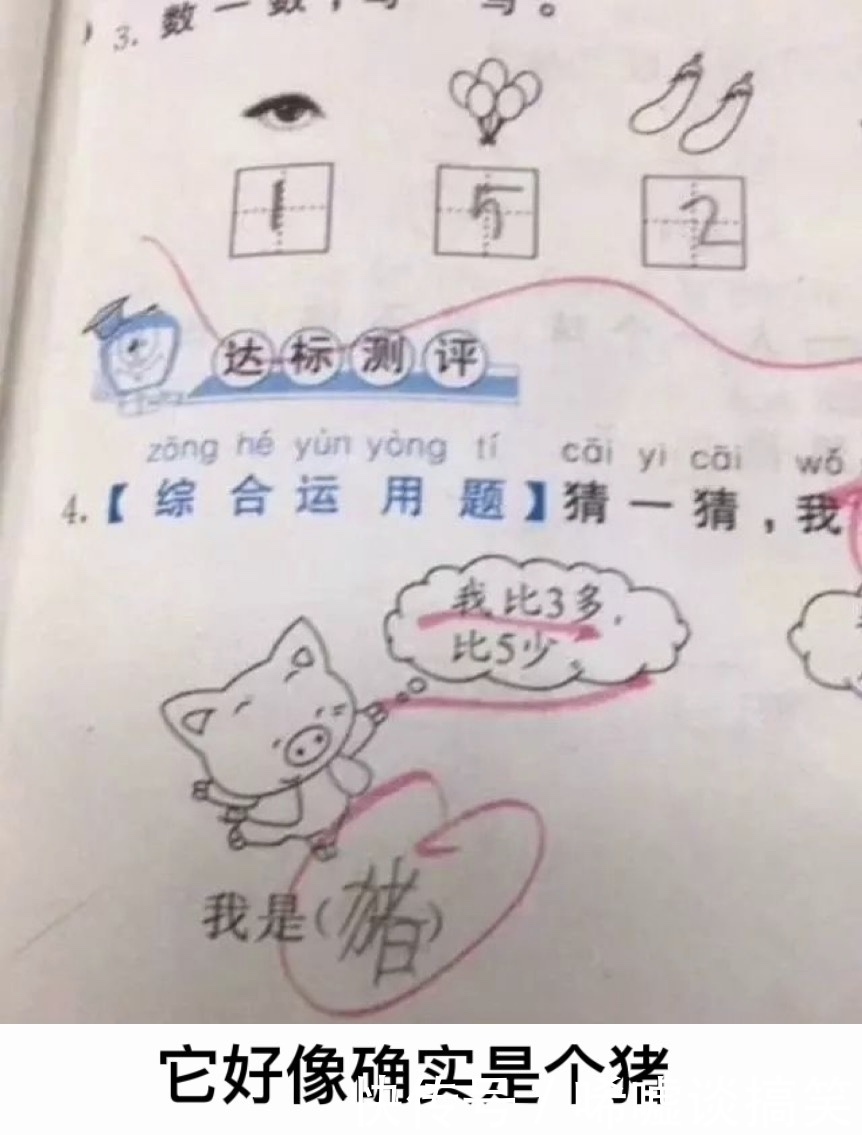 3. 数一数，写一写。
1 5 2
达标测评
zōng hé yùn yòng tí cāi yi cāi wǒ
4.【综合运用题】猜一猜，我
我比3多，
比5少。
我是(猪)
它好像确实是个猪